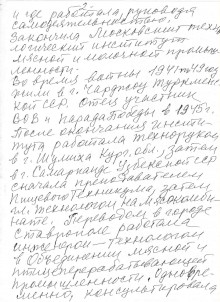 и где работала, руководя
самодеятельностью.
Закончила Московский техно-
логический институт
мясной и молочной промыш-
ленности.
Во время войны 1941-
жили в г. Чарджоу Туркмен-
ской ССР. Отец участник
ВОВ и Парада Победы в 1945 г.
После окончания инсти-
тута работала технологом
в г. Шумиха Кург. обл., затем
в г. Самарканде Узбекской ССР
сначала преподавателем
Пищевого техникума, затем
технологом на мясокомби-
нате. Переводом в городе
Ставрополе работала
инженером-технологом
в Объединении мясной и
птицеперерабатывающей
промышленности. Одновре-
менно, консультировала